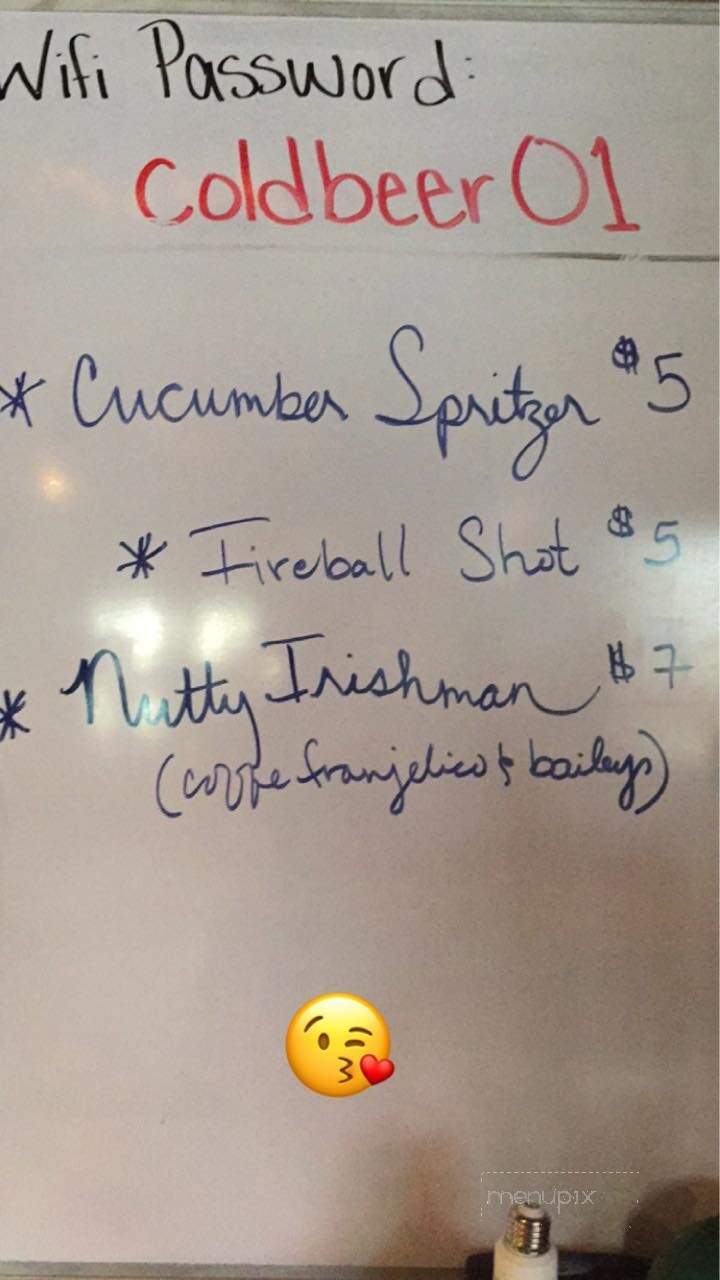 Wifi Password:
coldbeer01
* Cucumber Spritzer $5
* Fireball Shot $5
* Nutty Irishman $7
(coffe franjelico & baileys)
menupix